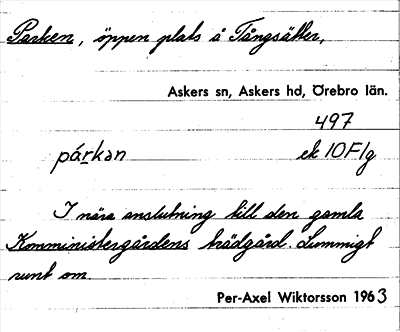 Parken, öppen plats å Tångsätter,
Askers sn, Askers hd, Örebro län.
497
párkan
ek 10F1g
I nära anslutning till den gamla
Komministergårdens trädgård. Lummigt
runt om.
Per-Axel Wiktorsson 1963